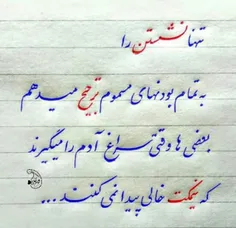 تنها نشستن را
به تمام بودنهای مسموم ترجیح میدهم
بعضی ها وقتی سراغ آدم را میگیرند
که نیمکت خالی پیدا نمی کنند ...